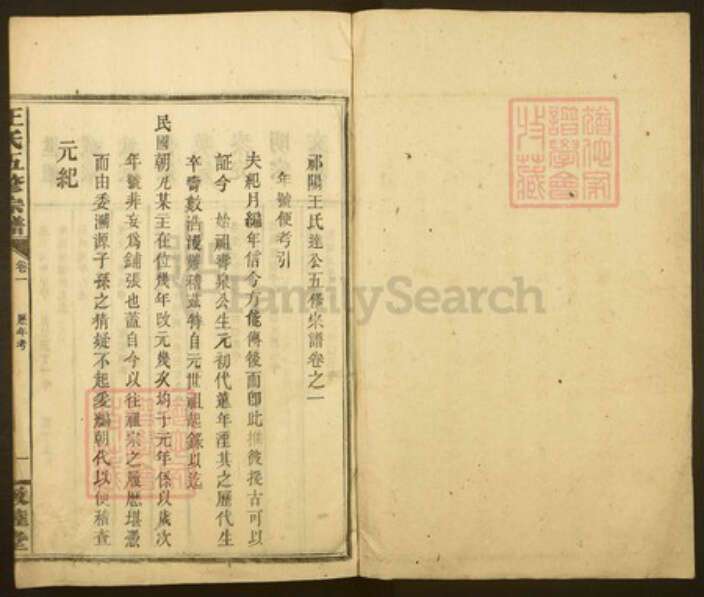 祁陽王氏達公五修宗譜卷之一
年號便考引
夫紀月編年信今方能傳後而卽此推後援古可以
証今　始祖　泉公生元初代遠年湮其之歷代生
卒壽數浩漫難稽茲特自元世祖起錄以迄
民國朝元某主在位幾年改元幾次均于元年係以歲次
年號非妄爲鋪張也蓋自今以往祖宗之履歷堪憑
而由委溯源子孫之猜疑不起爰編朝代以便稽查
元紀
王氏五修宗譜
卷一
歷年考
一
槐堂
FamilySearch